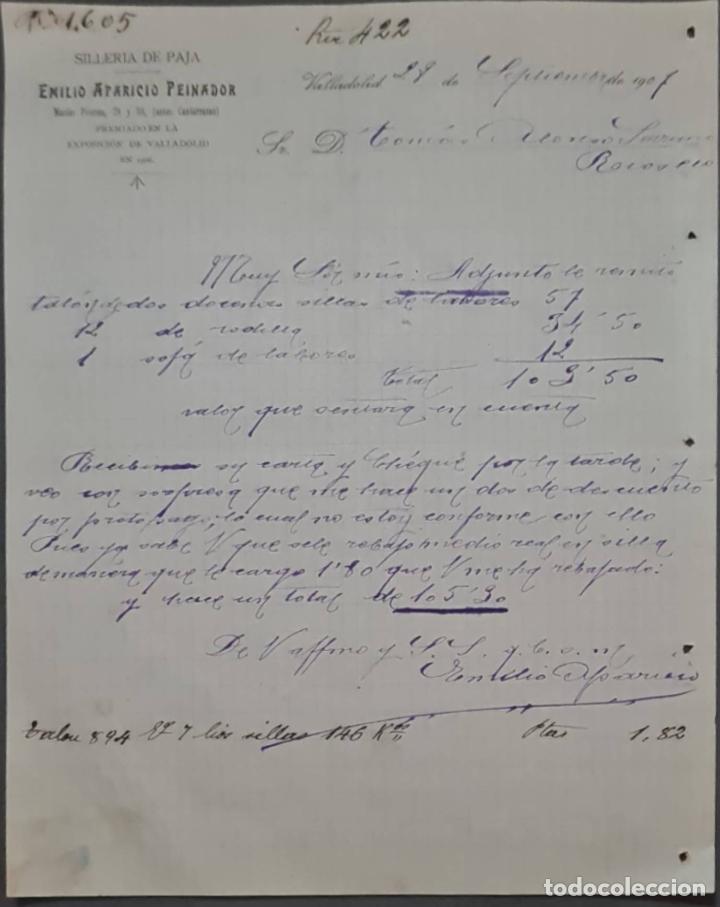 1.605
Rex 422
SILLERIA DE PAJA
EMILIO APARICIO PEINADOR
PREMIADO EN LA
EXPOSICIÓN DE VALLADOLID
EN 1906.
Valladolid 27 de Septiembre de 1907
Sr. D. Tomás Alonso
Muy Sr mio: Adjunto le remito
talon de dos docenas sillas de labores 57
12 de rodilla 34'50
1 sofá de labores 12
Total 103'50
valor que sentara en cuenta
Recibi su carta y cheque por la tarde; y
veo con sorpresa que me hace un dos de descuento
por pronto pago, lo cual no estoy conforme con ello
Pues ya sabe V que se le rebajo medio real en silla
de manera que le cargo 1'80 que V me ha rebajado:
y hace un total de 105'30
De V affmo y S. S. q. b. s. m
Emilio Aparicio
Talon 894 7 lios sillas 146 Ks Ptas 1,82
todocoleccion.net